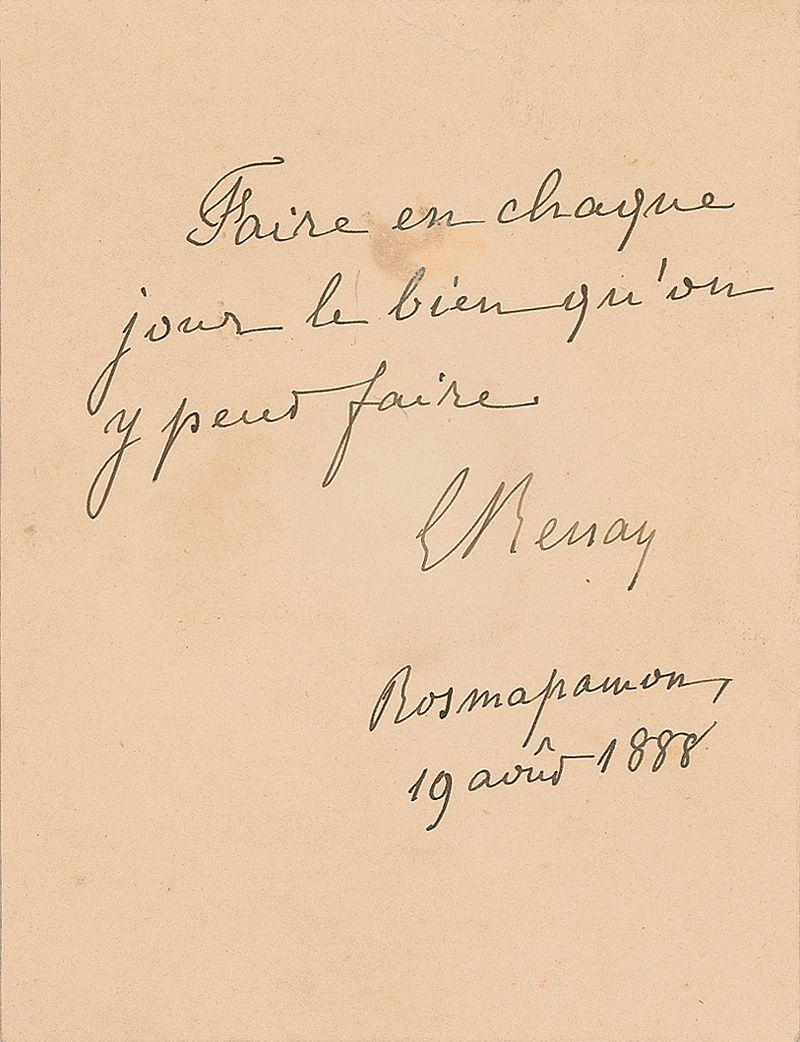 Faire en chaque
jour le bien qu'on
y peut faire
E Renan
Rosmapamon,
19 août 1888